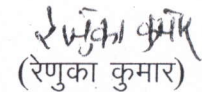 रेणुका कुमार
(रेणुका कुमार)